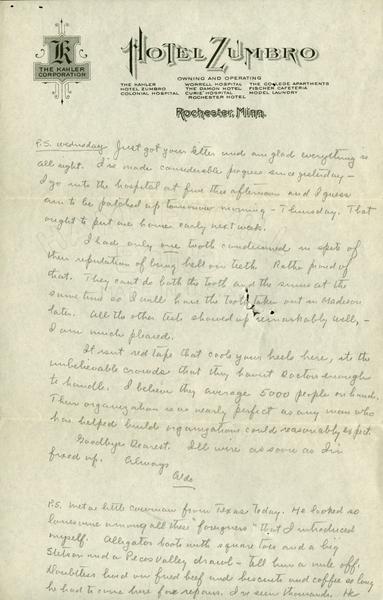 K
THE KAHLER
CORPORATION
HOTEL ZUMBRO
OWNING AND OPERATING
THE KAHLER
HOTEL ZUMBRO
COLONIAL HOSPITAL
WORRELL HOSPITAL
THE DAMON HOTEL
CURIE HOSPITAL
ROCHESTER HOTEL
THE COLLEGE APARTMENTS
FISCHER CAFETERIA
MODEL LAUNDRY
Rochester, Minn.
P.S. Wednesday Just got your letter and am glad everything is
all right. I've made considerable progress since yesterday –
I go into the hospital at five this afternoon and I guess
am to be patched up tomorrow morning – Thursday. That
ought to put me home early next week.
I had only one tooth condemned in spite of
their reputation of being hell on teeth. Rather proud of
that. They can't do both the tooth and the sinus at the
same time so I will have the tooth taken out in Madison
later. All the other tests showed up remarkably well, –
I am much pleased.
It isn't red tape that cools your heels here, its the
unbelievable crowds that they haven't Doctors enough
to handle. I believe they average 5000 people on hand.
Their organization is as nearly perfect as any man who
has helped build organizations could reasonably expect.
Goodbye Dearest. I'll wire as soon as I'm
fixed up. Always
Aldo
P.S. Met a little cowman from Texas today. He looked so
lonesome among all these "foreigners" that I introduced
myself. Alligator boots with square toes and a big
Stetson and a Pecos Valley drawl – tell him a mile off.
Doubtless lived on fried beef and biscuits and coffee so long
he had to come here for repairs. I've seen thousands. He